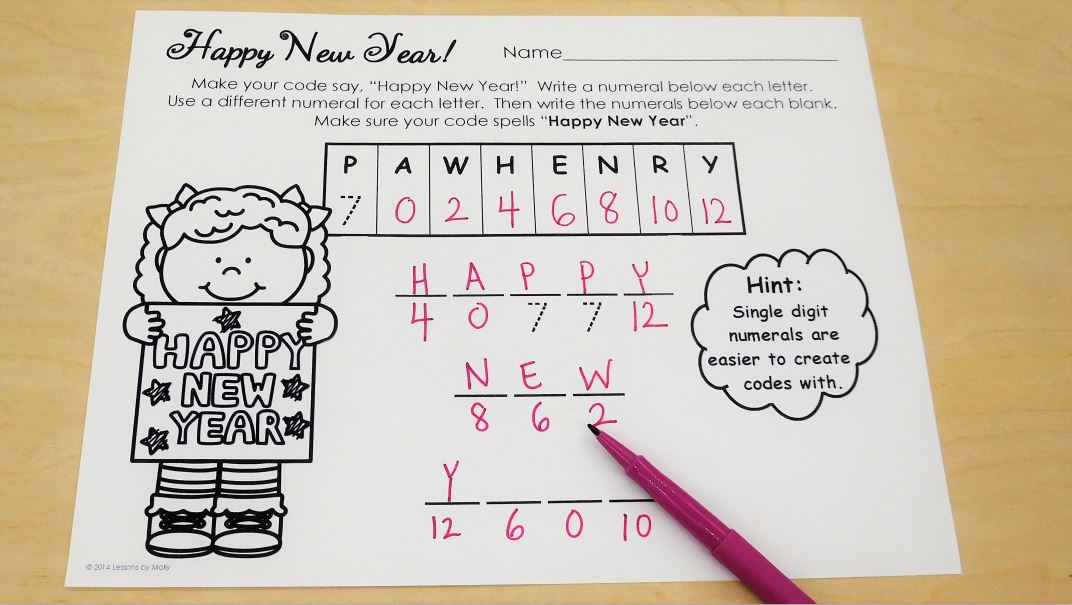 Happy New Year!
Name
Make your code say, “Happy New Year!” Write a numeral below each letter.
Use a different numeral for each letter. Then write the numerals below each blank.
Make sure your code spells “Happy New Year”.
P A W H E N R Y
7 0 2 4 6 8 10 12
H A P P Y
4 0 7 7 12
Hint:
Single digit
numerals are
easier to create
codes with.
HAPPY
NEW
YEAR
N E W
8 6 2
Y
12 6 0 10
© 2014 Lessons by Molly